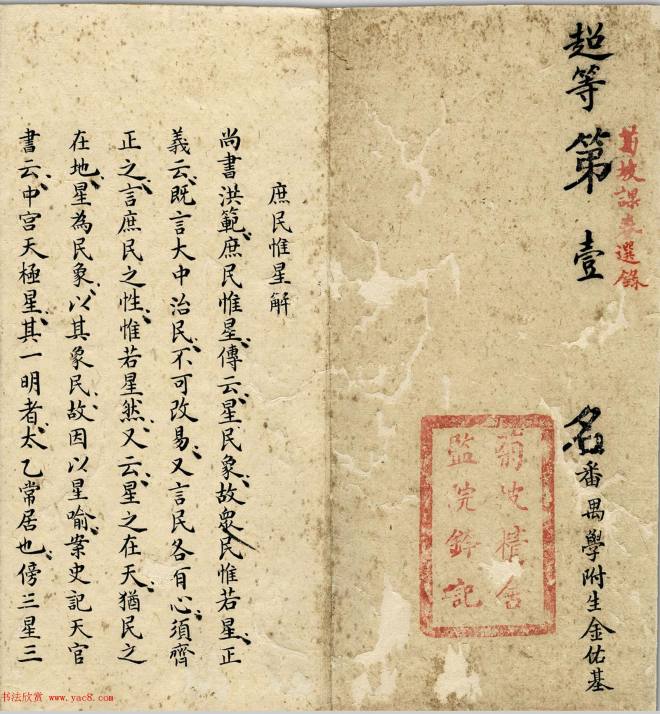 菊坡課卷選錄
超等第壹名
番禺學附生金佑基
菊坡精舍
監院鈐記
庶民惟星解
尚書洪範庶民惟星傳云星民象故衆民惟若星正
義云既言大中治民不可改易又言民各有心須齊
正之言庶民之性惟若星然又云星之在天猶民之
在地星為民象以其象民故因以星喻案史記天官
書云中宮天極星其一明者太乙常居也傍三星三
书法欣赏 www.yac8.com